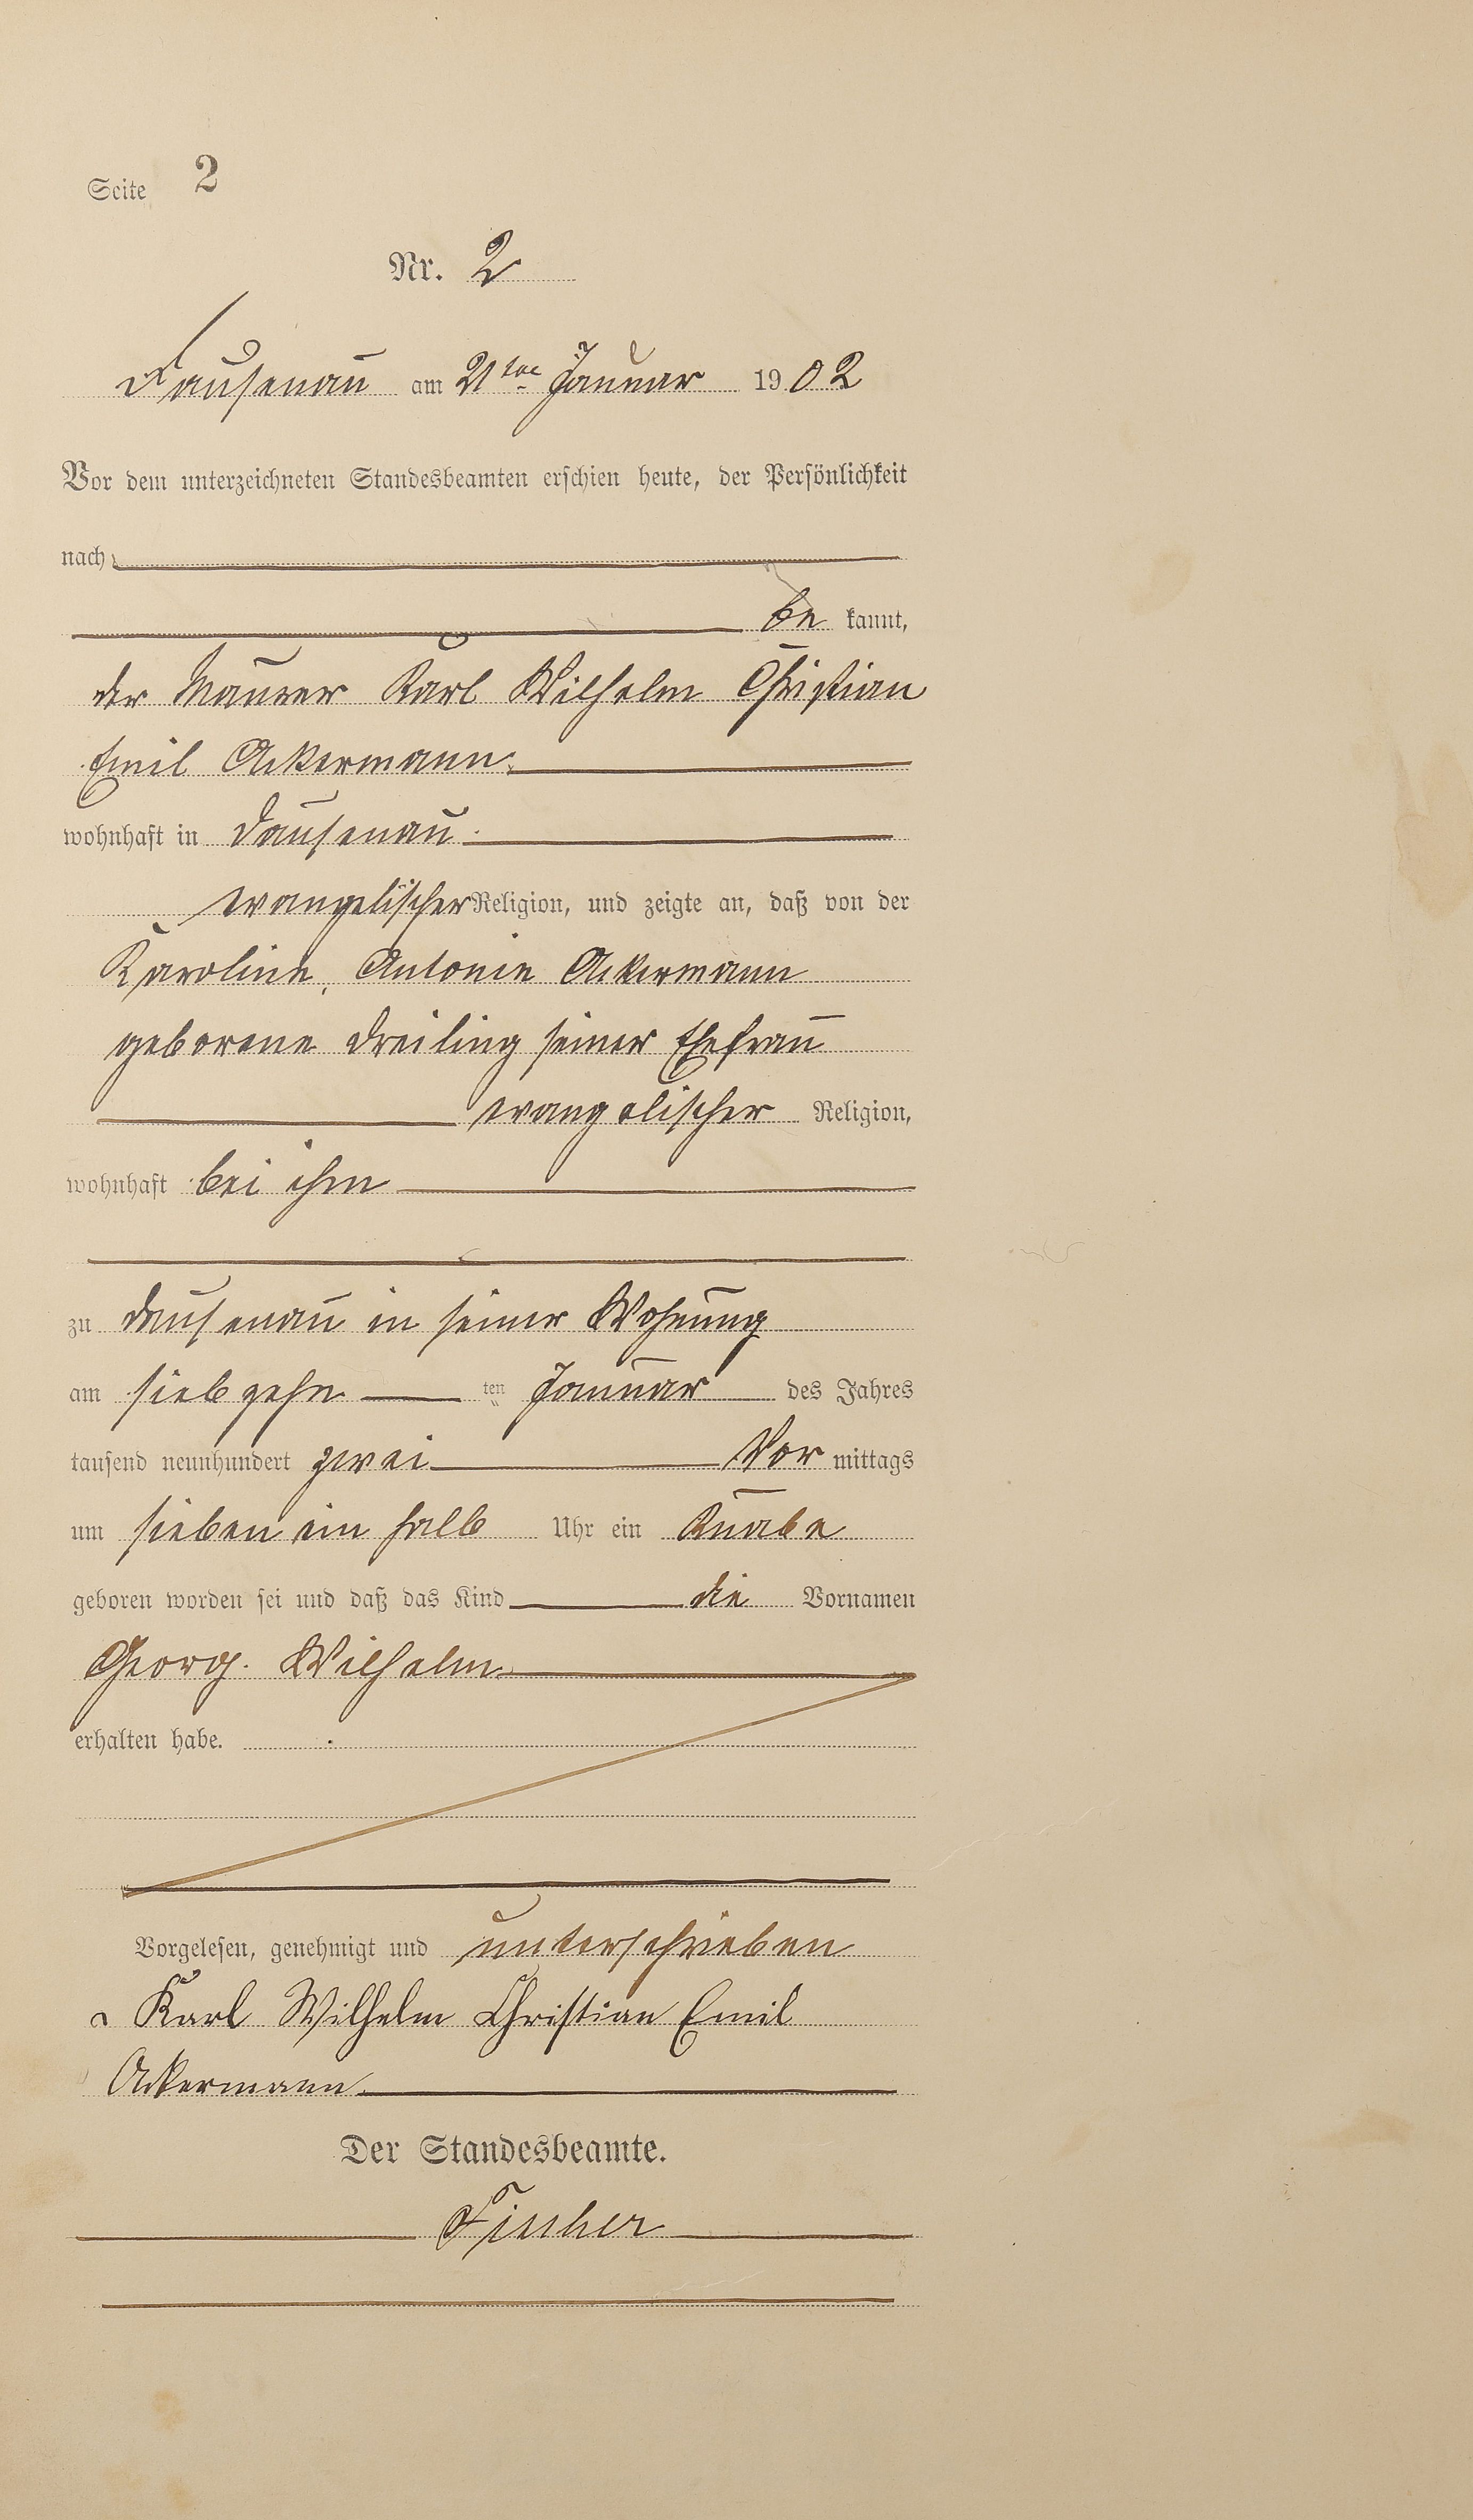 Seite 2
Nr. 2
Dausenau am 21ten Januar 1902
Vor dem unterzeichneten Standesbeamten erschien heute, der Persönlichkeit
nach
be kannt,
der Maurer Karl Wilhelm Christian
Emil Ackermann
wohnhaft in Dausenau
evangelischer Religion, und zeigte an, daß von der
Karoline, Antonie Ackermann
geborene Dreiling seiner Ehefrau
evangelischer Religion,
wohnhaft bei ihm
zu Dausenau in seiner Wohnung
am siebzehn ten Januar des Jahres
tausend neunhundert zwei Vor mittags
um sieben ein halb Uhr ein Knabe
geboren worden sei und daß das Kind die Vornamen
Georg Wilhelm
erhalten habe.
Vorgelesen, genehmigt und unterschrieben
Karl Wilhelm Christian Emil
Ackermann
Der Standesbeamte.